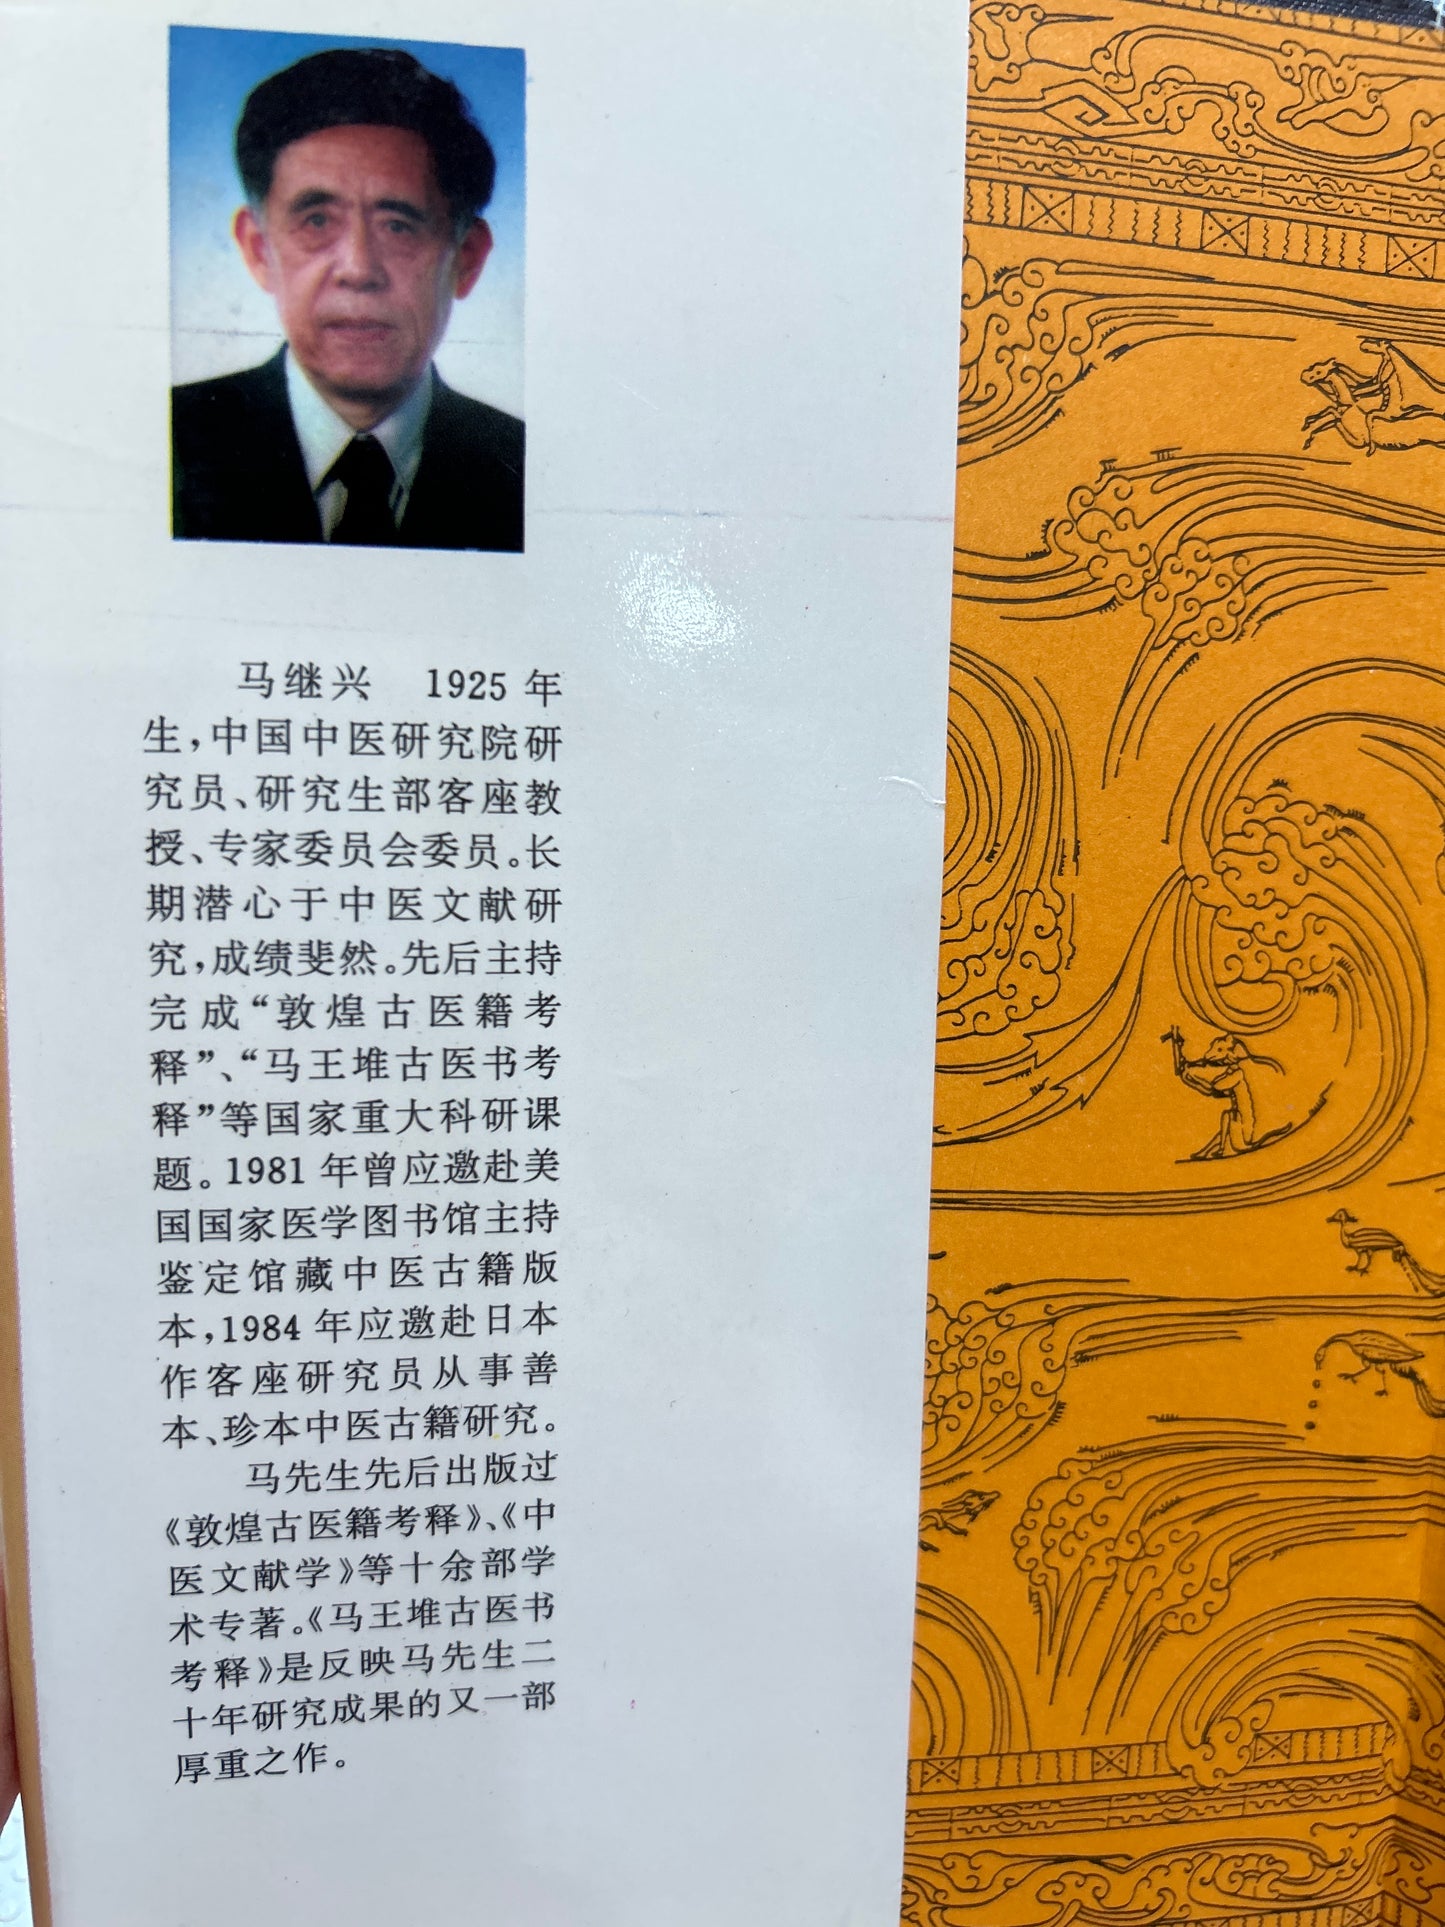 马继兴 1925年
生，中国中医研究院研
究员、研究生部客座教
授、专家委员会委员。长
期潜心于中医文献研
究，成绩斐然。先后主持
完成“敦煌古医籍考
释”、“马王堆古医书考
释”等国家重大科研课
题。1981年曾应邀赴美
国国家医学图书馆主持
鉴定馆藏中医古籍版
本，1984年应邀赴日本
作客座研究员从事善
本、珍本中医古籍研究。
马先生先后出版过
《敦煌古医籍考释》、《中
医文献学》等十余部学
术专著。《马王堆古医书
考释》是反映马先生二
十年研究成果的又一部
厚重之作。